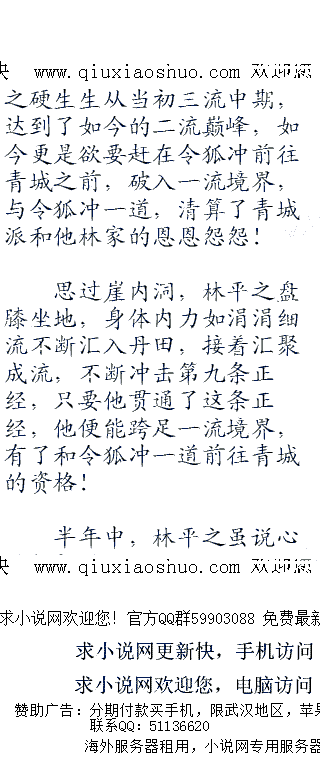 快 www.qiuxiaoshuo.com 欢迎您
之硬生生从当初三流中期，
达到了如今的二流巅峰，如
今更是欲要赶在令狐冲前往
青城之前，破入一流境界，
与令狐冲一道，清算了青城
派和他林家的恩恩怨怨！
思过崖内洞，林平之盘
膝坐地，身体内力如涓涓细
流不断汇入丹田，接着汇聚
成流，不断冲击第九条正
经，只要他贯通了这条正
经，他便能跨足一流境界，
有了和令狐冲一道前往青城
的资格！
半年中，林平之虽说心
快 www.qiuxiaoshuo.com 欢迎您
求小说网欢迎您! 官方QQ群59903088 免费最新
求小说网更新快，手机访问
求小说网欢迎您，电脑访问
赞助广告：分期付款买手机，限武汉地区，苹果
联系QQ：51136620
海外服务器租用，小说网专用服务器